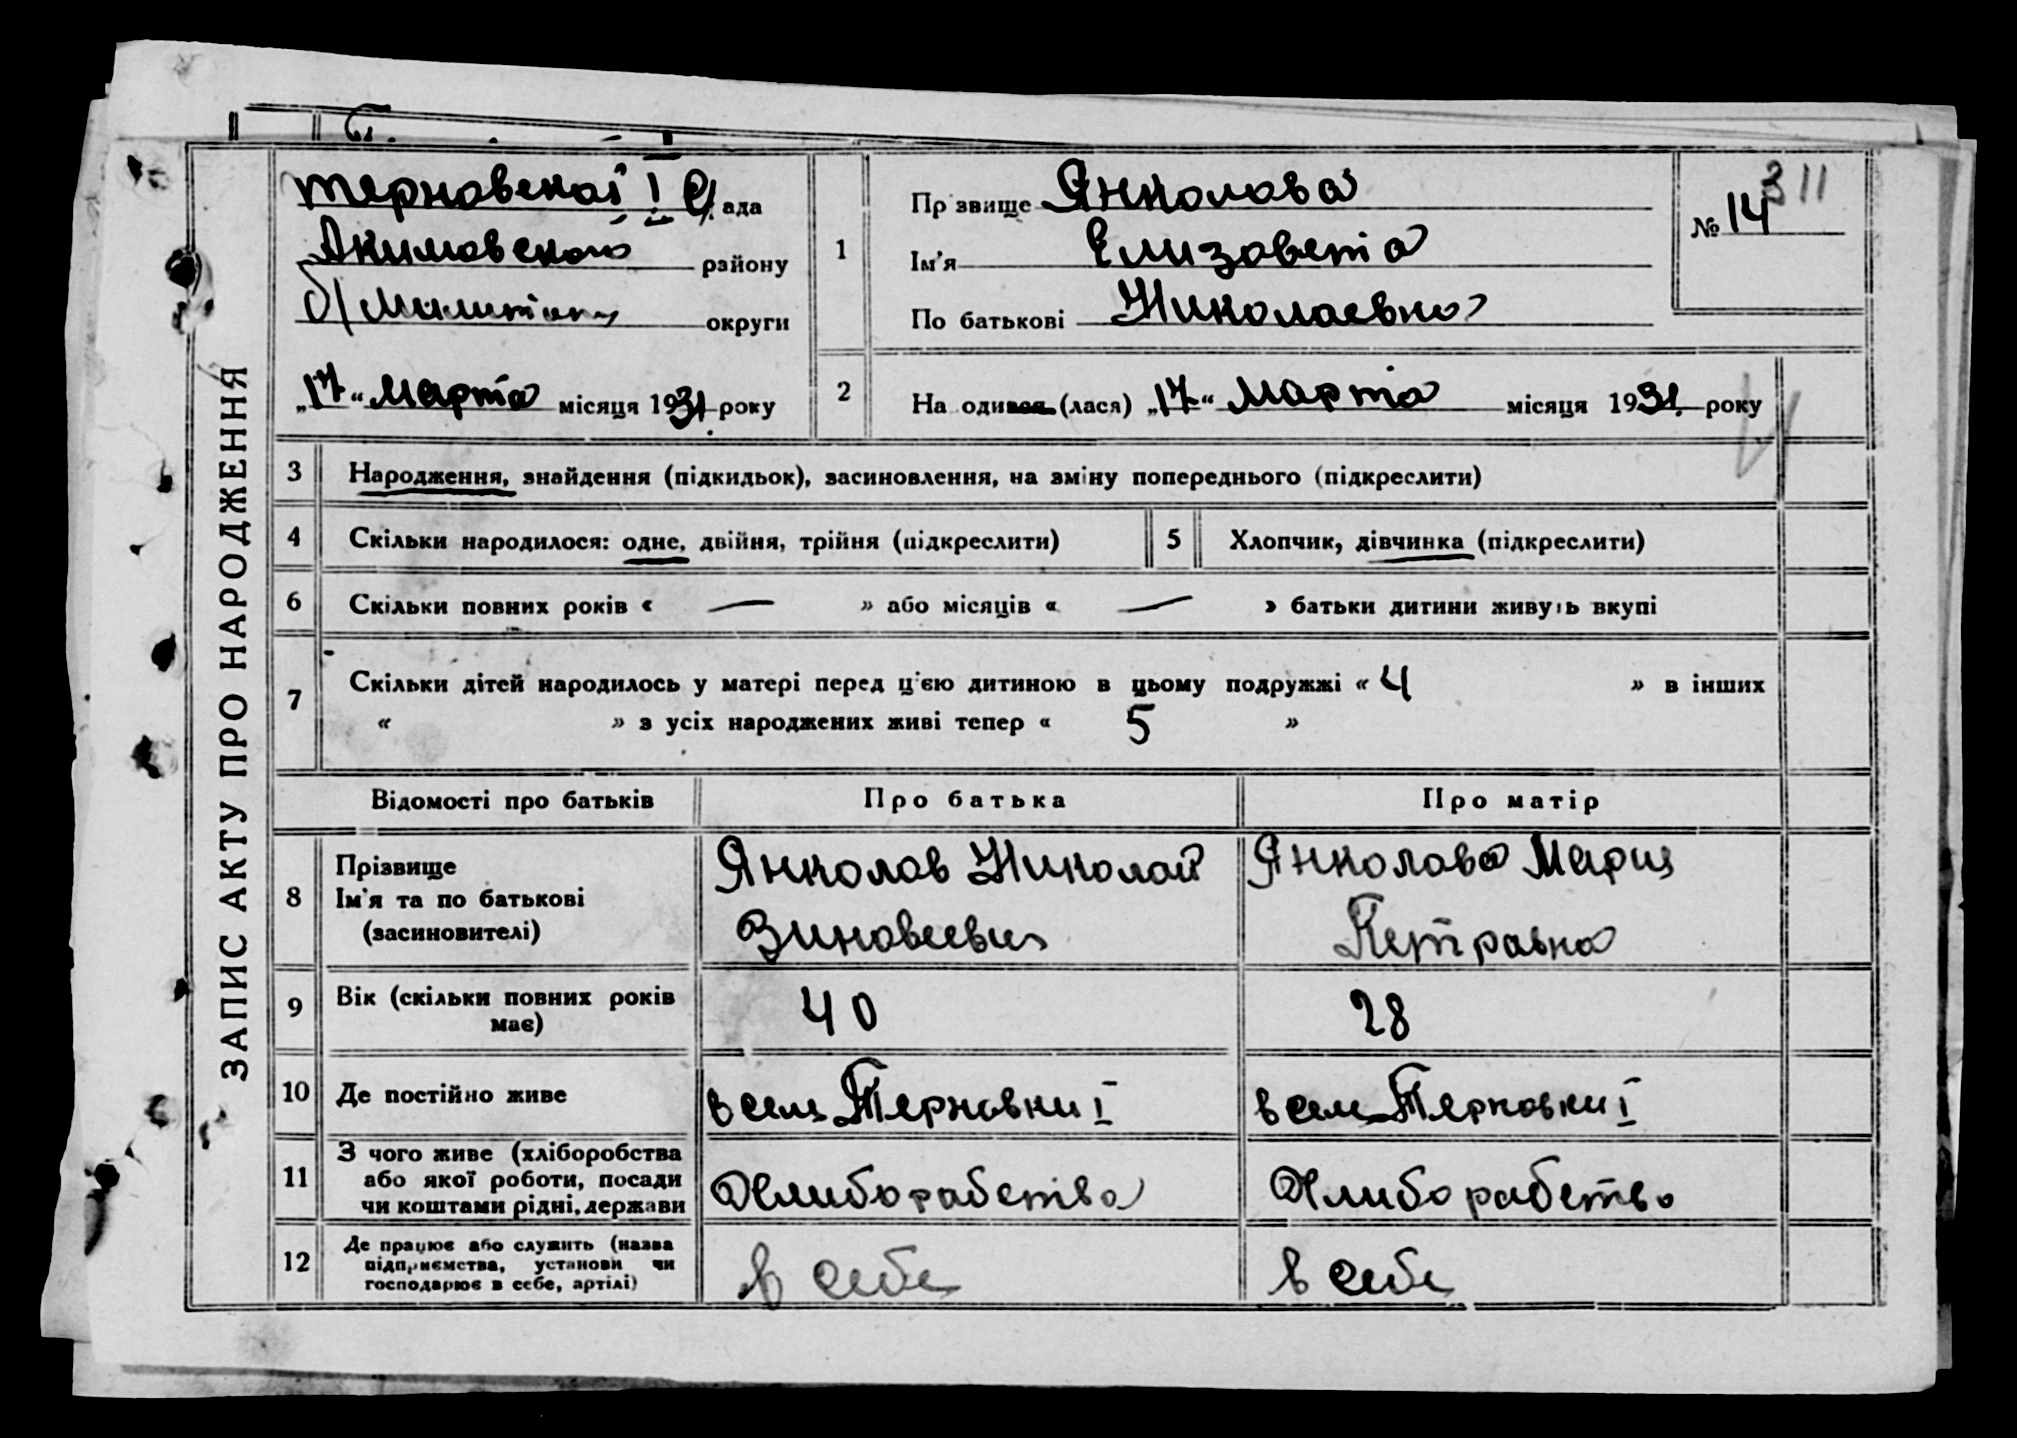 ЗАПИС АКТУ ПРО НАРОДЖЕННЯ
Терновской I С/рада
Акимовского району
б/Мелитоп округи
„17“ Марта місяця 1931 року
1
Прізвище Янколова
Ім'я Елизовета
По батькові Николаевна
№ 14
311
2
На одився (лася) „17“ Марта місяця 1931. року
3 Народження, знайдення (підкидьок), засиновлення, на зміну попереднього (підкреслити)
4 Скільки народилося: одне, двійня, трійня (підкреслити)
5 Хлопчик, дівчинка (підкреслити)
6 Скільки повних років « — » або місяців « — » батьки дитини живуть вкупі
7 Скільки дітей народилось у матері перед ц'єю дитиною в цьому подружжі « 4 » в інших
« » з усіх народжених живі тепер « 5 »
Відомості про батьків Про батька Про матір
8 Прізвище
Ім'я та по батькові
(засиновителі)
Янколов Николай
Зиновеевич
Янколова Мария
Петровна
9 Вік (скільки повних років
має)
40
28
10 Де постійно живе
в селе Терновки I
в селе Терновки I
11 З чого живе (хліборобства
або якої роботи, посади
чи коштами рідні, держави
Хлиборабства
Хлиборабство
12 Де працює або служить (назва
підприємства, установи чи
господарює в себе, артілі)
в себе
в себе